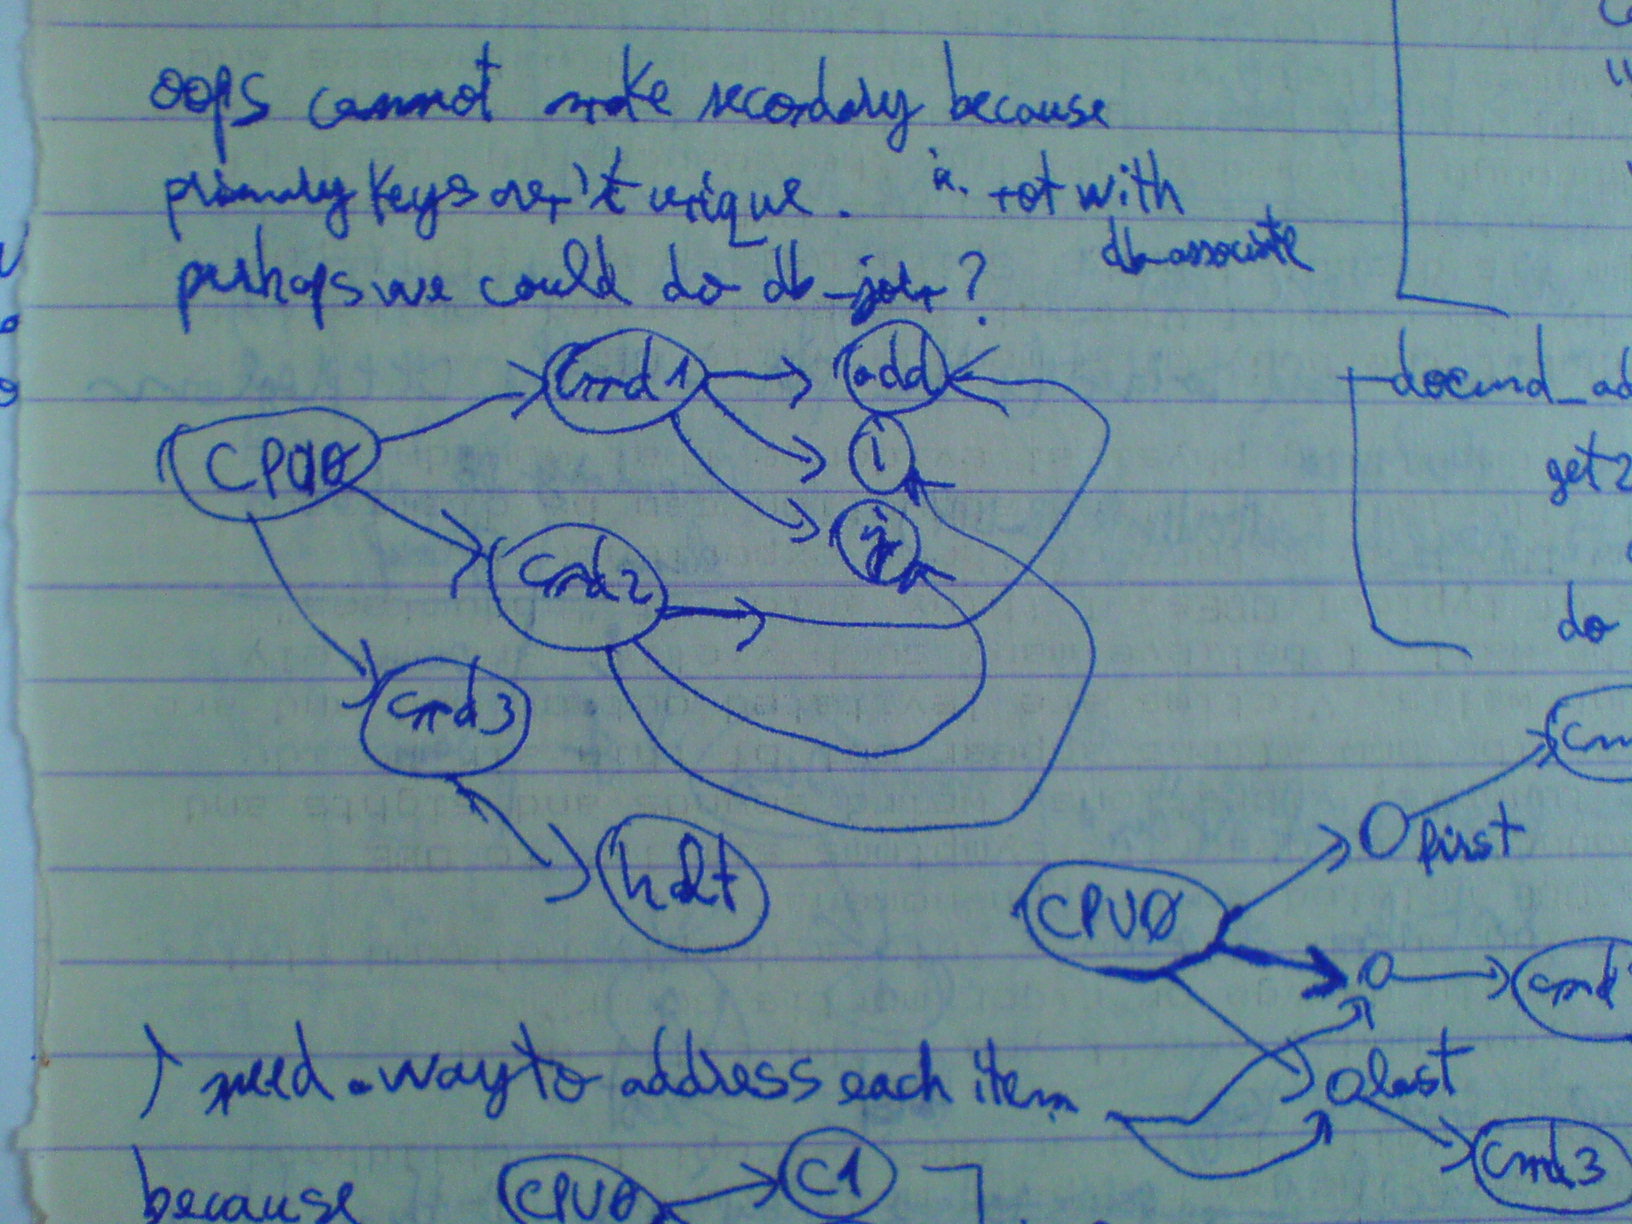 oops cannot make secondary because
primary keys aren't unique. not with
db_associate
perhaps we could do db_join?
cmd1
add
CPU0
i
j
cmd2
cmd3
halt
docmd_ad
get2
do
cm
first
CPU0
cmd
last
cmd3
need a way to address each item
because
CPU0
C1